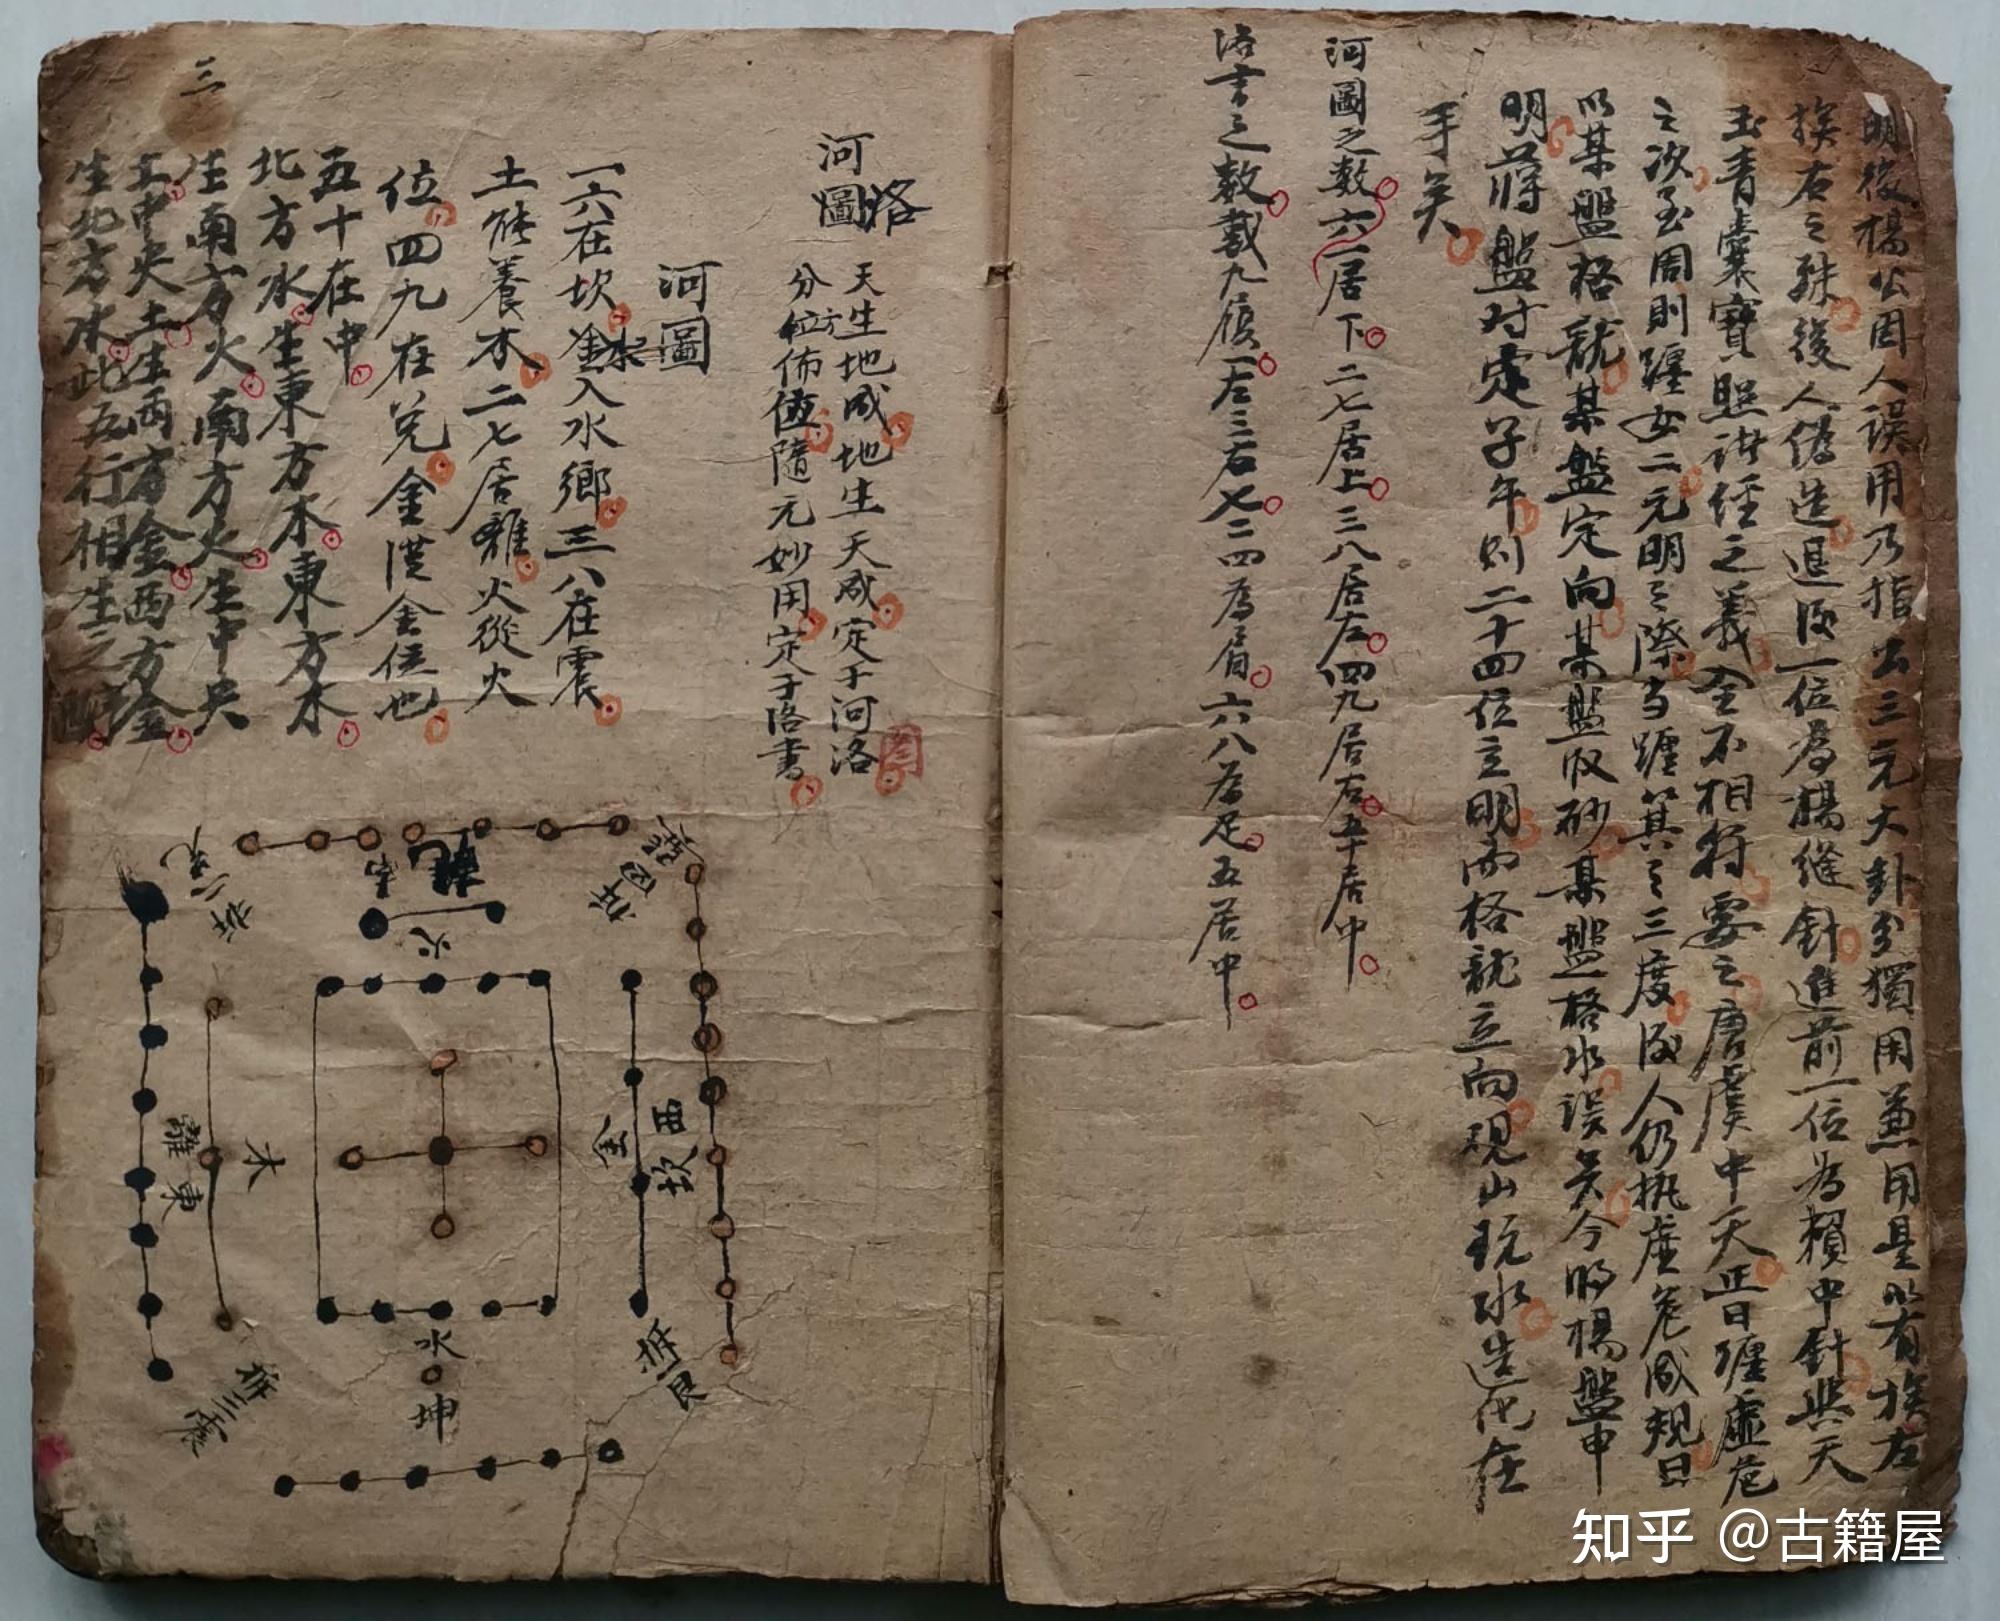 明後楊公因人誤用乃指出三元大卦分獨用兼用是以有挨左
挨右之殊後人偽造退後一位為楊縫針進前一位為賴中針與天
玉青囊寶照諸經之義全不相符要之唐虞中天正日纏虛危
之次至周則纏女二元明之際當纏箕之三度後人仍执虛危咸規日
以某盤格龍某盤定向某盤收砂某盤格水誤矣今将楊盤申
明蔣盤对定子午则二十四位立明而格龍立向观山玩水造化在
手矣
河圖之數六一居下二七居上三八居左四九居右五十居中
洛書之數戴九履一左三右七二四為肩六八為足五居中
河圖洛
天生地成地生天成定于河洛
分位方佈值隨元妙用定于洛書
河圖
一六在坎金水入水鄉三八在震
土能養木二七居離火從火
位四九在兌金從金位也
五十在中
北方水生東方木東方木
生南方火南方火生中央
土中央土生西方金西方金
生北方水此五行相生之
三
乾
南
火
兌
巽
離
東
木
金
西
坎
震
水
坤
艮
知乎 @古籍屋